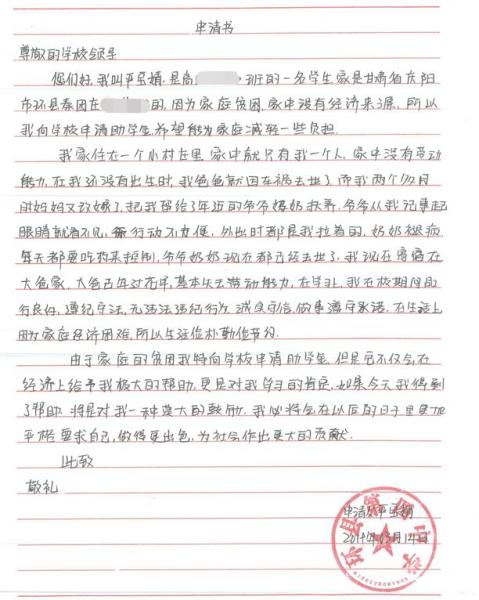 申请书
尊敬的学校领导
您们好,我叫平 娟,是高 班的一名学生家是甘肃省庆阳
市环县秦团庄 的,因为家庭贫困,家中没有经济来源,所以
我向学校申请助学金,希望能为家庭减轻一些负担.
我家住在一个小村庄里,家中就只有我一个人,家中没有劳动
能力,在我还没有出生时,我爸爸就因车祸去世了,而我两个多月
时妈妈又改嫁了,把我留给了年迈的爷爷奶奶扶养,爷爷从我记事起
眼睛就看不见,行动不方便,外出时都是我拉着的,奶奶 病
每天都要吃药来控制,爷爷奶奶现在都已经去世了,我现在 在
大爸家,大爸已年过花甲,基本失去劳动能力,在学习上,我在校期间品
行良好,遵纪守法,无违法违纪行为,诚实守信,做事遵守承诺,在生活上
因为家庭经济困难,所以生活俭朴勤俭节约.
由于家庭的贫困我特向学校申请助学金,但是它不仅会在
经济上给予我极大的帮助,更是对我学习的肯定,如果今天我得到
了帮助,将是对我一种莫大的鼓励,我必将会在以后的日子里更加
严格要求自己,做得更出色,为社会作出更大的贡献.
此致
敬礼
申请人:平 娟
环县第 中学